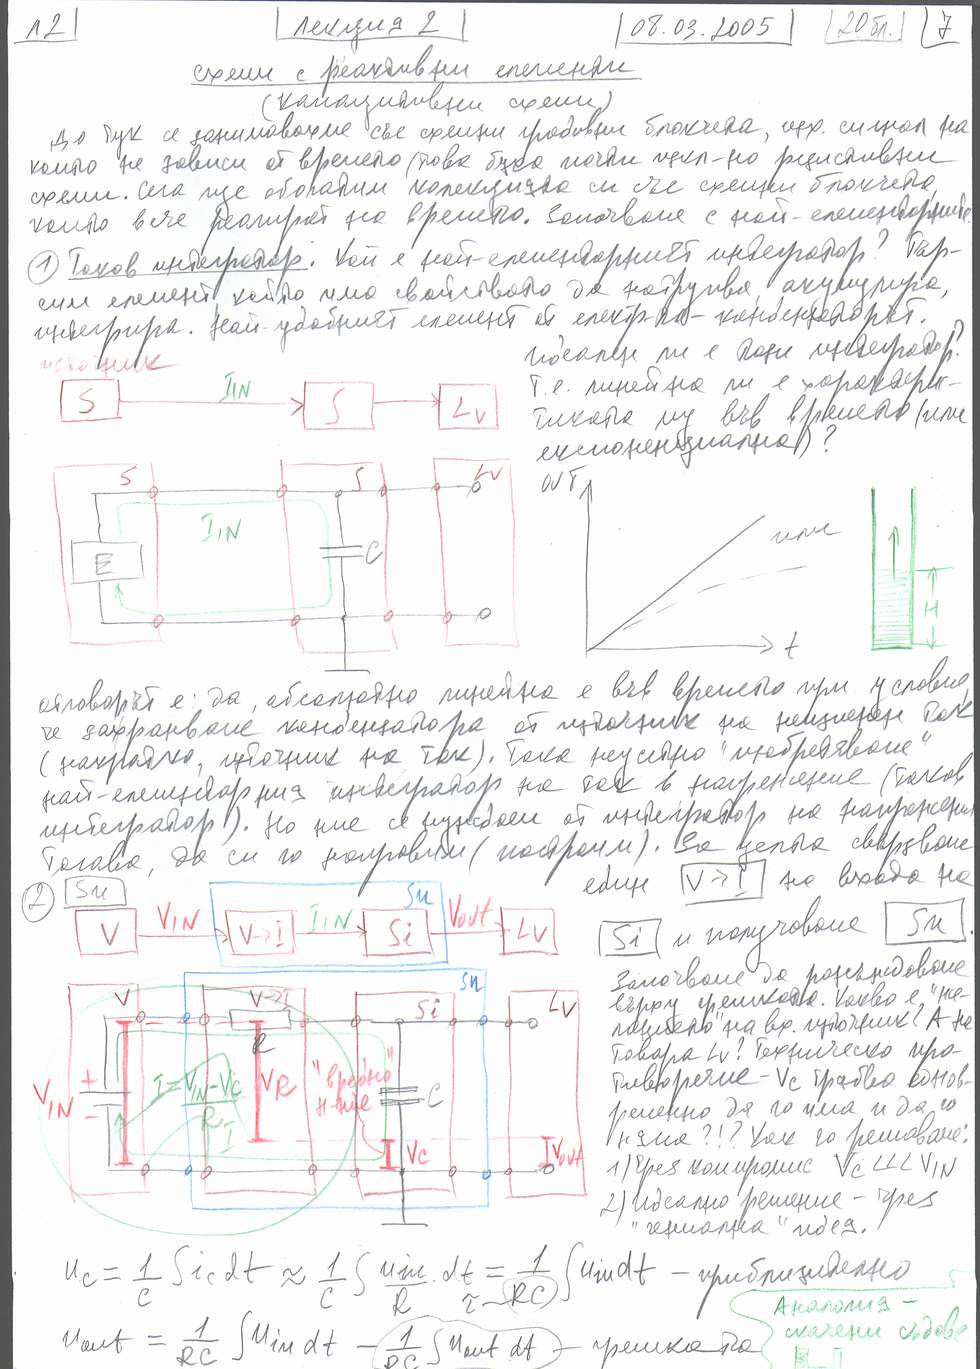 Л2 Лекция 2 08.03.2005 20бл. 7
схеми с реактивни елементи
(капацитивни схеми)
До тук се занимавахме със схемни градивни блокчета, изх. сигнал на
които не зависи от времето (това бяха почти изкл-но резистивни
схеми. Сега ще обогатим колекцията си със схемни блокчета,
които вече реагират на времето. Започваме с най-елементарните.
1 Токов интегратор. Кой е най-елементарният интегратор? Тър-
сим елемент, който има свойството да натрупва, акумулира,
интегрира. Най-удобният елемент от електр-ка - кондензаторът.
източник
S IIN ∫ LV
Идеален ли е този интегратор?
Т.е. линейна ли е характерис-
тиката му във времето (или
експоненциална)?
S ∫ LV
E IIN C
OUT или t
H
отговорът е: да, абсолютно линейна е във времето при условие,
че захранваме кондензатора от източник на неизменен ток
(накратко, източник на ток). Така неусетно "изобретяваме"
най-елементарния интегратор на ток в напрежение (токов
интегратор). Но ние се нуждаем от интегратор на напрежение
Тогава, да си го направим (построим). За целта свързваме
един V→I на входа на
Si и получаваме Su.
2 Su
V VIN V→I IIN Si Su VOUT LV
Започваме да разсъждаваме
върху грешката. Какво е "не-
на вх. източник? А на
товара LV? Техническо про-
тиворечие - VC трябва едновременно
да го има и да го
няма?!? Как го решаваме:
1) Чрез компромис VC <<< VIN
2) Идеално решение - чрез
"гениална" идея.
V V→I Si Su LV
R
VIN + - I = VIN-VC / R VR "вредно" н-ние C
I VC VOUT
uC = 1/C ∫ iC dt ≈ 1/C ∫ uin/R dt = 1/RC ∫ uin dt - приблизително
uout = 1/RC ∫ uin dt - 1/RC ∫ uout dt - грешката
Аналогия -
скачени съдове